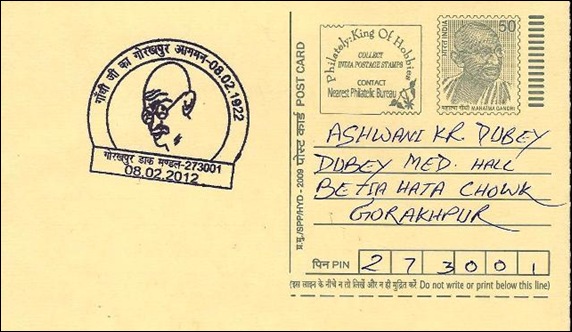 गाँधी जी का गोरखपुर आगमन-08.02.1922
गोरखपुर डाक मण्डल-273001
08.02.2012
Philately: King Of Hobbies
COLLECT
INDIA POSTAGE STAMPS
CONTACT
Nearest Philatelic Bureau
भारत INDIA
50
महात्मा गाँधी MAHATMA GANDHI
पोस्ट कार्ड POST CARD
प्र.मु./SPP/HYD - 2009
ASHWANI KR. DUBEY
DUBEY MED. HALL
BETIA HATA CHOWK
GORAKHPUR
पिन PIN 2 7 3 0 0 1
(इस लाइन के नीचे न तो लिखें और न ही मुद्रित करें Do not write or print below this line)